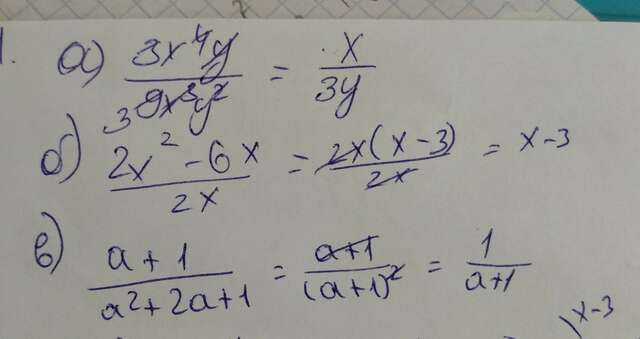 1. а) 3x⁴y / 9x³y² = x / 3y
3
б) 2x² - 6x / 2x = 2x(x-3) / 2x = x-3
в) a+1 / a²+2a+1 = a+1 / (a+1)² = 1 / a+1
x-3